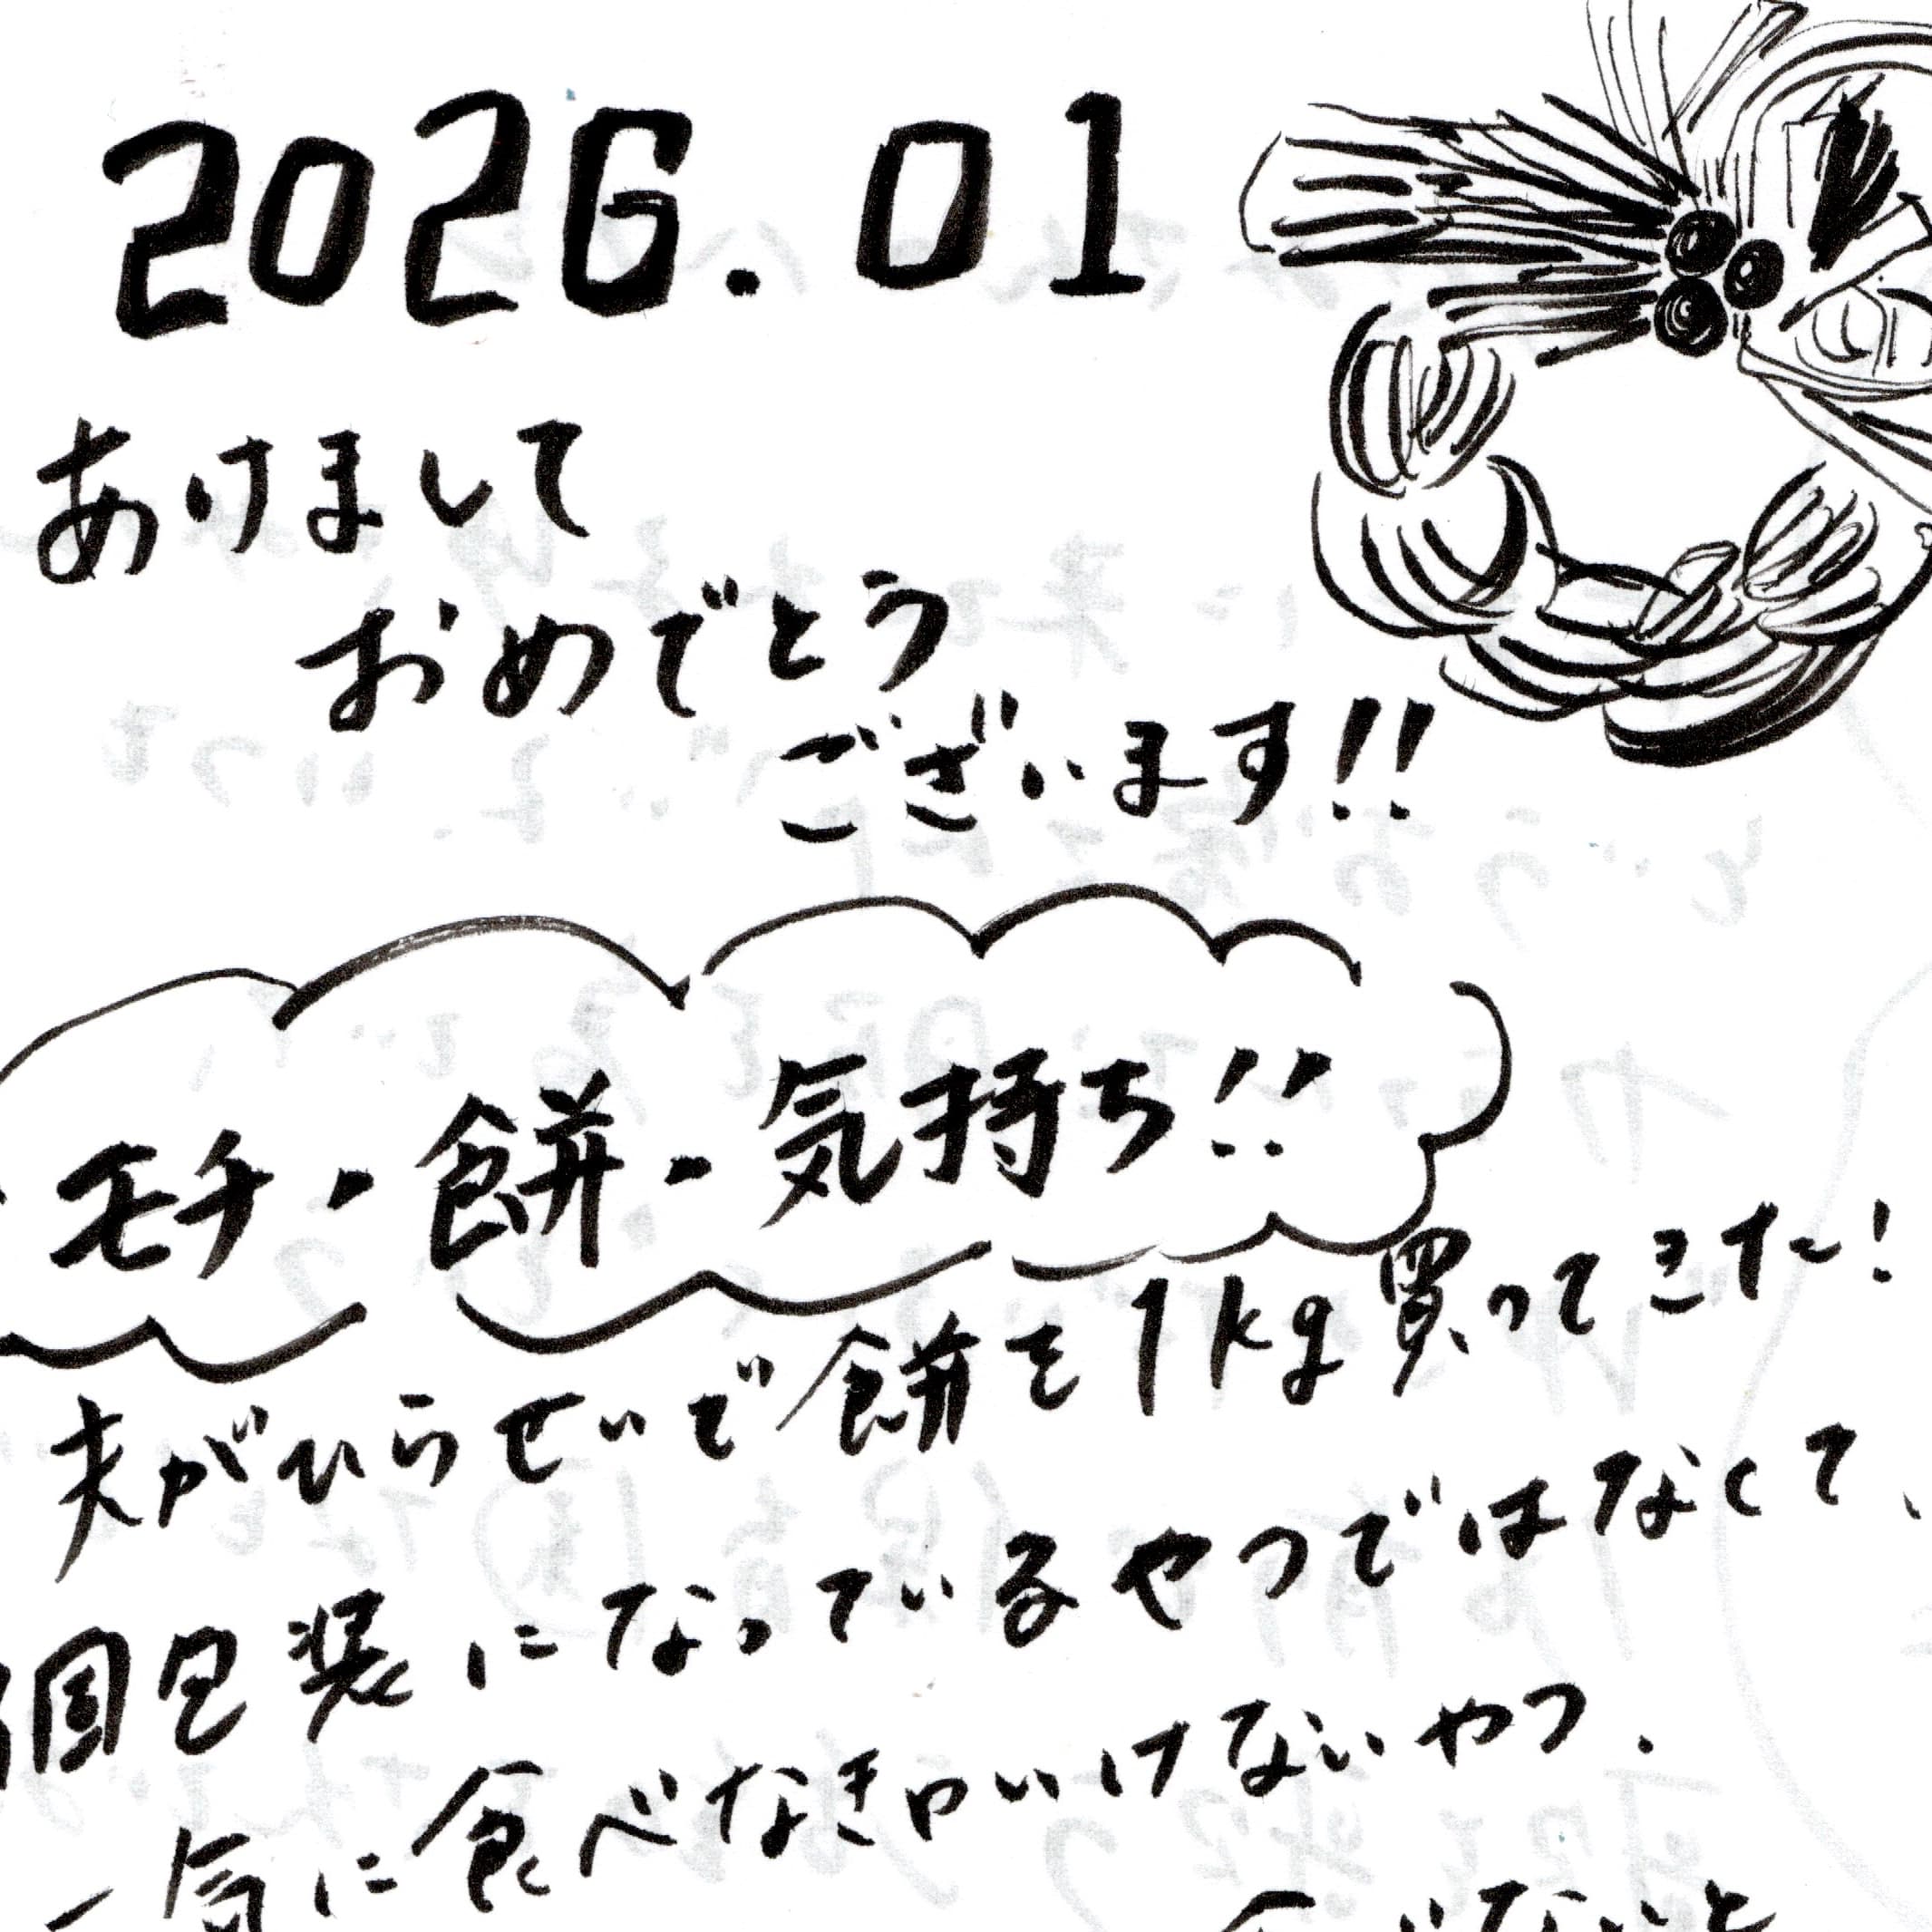 2026.01
あけまして
おめでとう
ございます!!
モチ・餅・気持ち!!
夫がひらせいで餅を1kg買ってきた!
個包装になっているやつではなくて、
一気に食べなきゃいけないやつ.
ないと